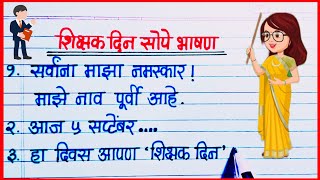 शिक्षक दिन सोपे भाषण
१. सर्वांना माझा नमस्कार!
माझे नाव पूर्वी आहे.
२. आज ५ सप्टेंबर....
३. हा दिवस आपण 'शिक्षक दिन'